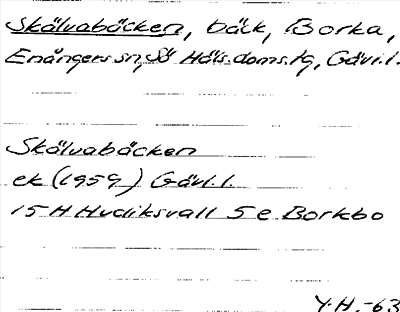 Skälvabäcken, bäck, Borka,
Enångers sn, Sö Häls. doms. lg, Gävl. l.
Skälvabäcken
ek (1959) Gävl. l.
15 H Hudiksvall 5 e Borkbo
Y.H.-63